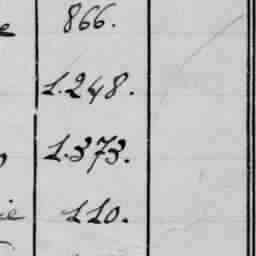 e 866.
1.248.
1.373.
ie 110.